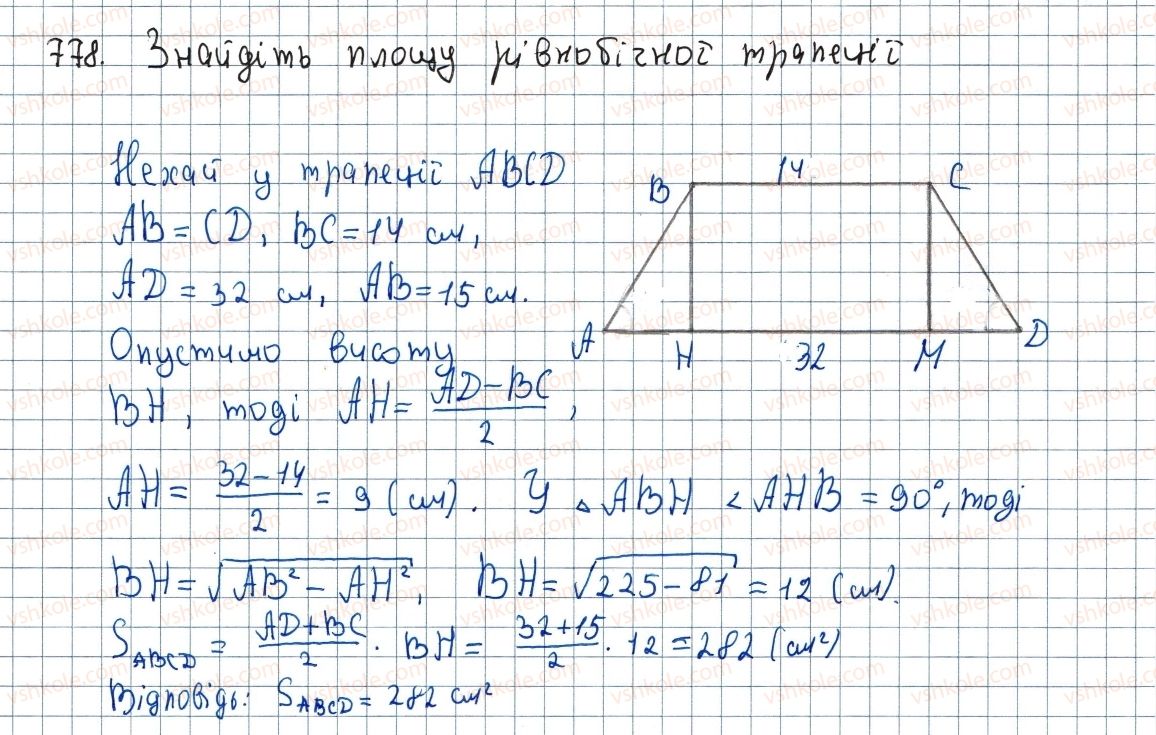 778. Знайдіть площу рівнобічної трапеції
Нехай у трапеції ABCD
AB = CD, BC = 14 см,
AD = 32 см, AB = 15 см.
Опустимо висоту
BH, тоді AH = (AD − BC)/2,
AH = (32 − 14)/2 = 9 (см). У △ ABH < AHB = 90°, тоді
BH = √(AB² − AH²), BH = √(225 − 81) = 12 (см).
S_ABCD = (AD + BC)/2 · BH = (32 + 15)/2 · 12 = 282 (см²)
Відповідь: S_ABCD = 282 см²
B 14 C
A H 32 M D
vshkole.com